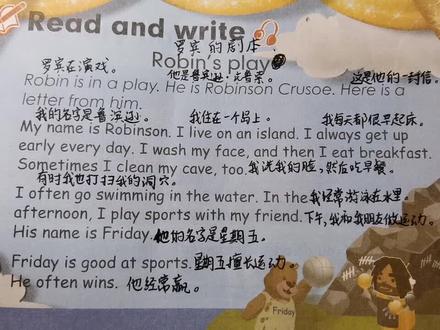 Read and write
罗宾的剧本
Robin's play
罗宾在演戏。 他是鲁滨逊·克鲁索。 这是他的一封信。
Robin is in a play. He is Robinson Crusoe. Here is a
letter from him.
我的名字是鲁滨逊。 我住在一个岛上。 我每天都很早起床。
My name is Robinson. I live on an island. I always get up
early every day. I wash my face, and then I eat breakfast.
Sometimes I clean my cave, too. 我洗我的脸,然后吃早餐。
有时我也打扫我的洞穴。
I often go swimming in the water. In the 我经常游泳在水里。
afternoon, I play sports with my friend. 下午,我和我朋友做运动。
His name is Friday. 他的名字是星期五。
Friday is good at sports. 星期五擅长运动。
He often wins. 他经常赢。
Friday